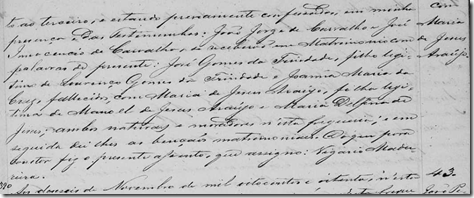 to ao terceiro, e estando previamente confessados, em minha com
presença e das testemunhas: João Jorge de Carvalho e José Maria
Innocencio de Carvalho, se receberão em Matrimonio com de Jesus
palavras de presente: José Gomes da Trindade, filho legi- Araújo.
timo de Lourenço Gomes da Trindade e Joanna Maria da
Cruz, fallecida, com Maria de Jesus Araújo, filha legi-
tima de Manoel de Jesus Araújo e Maria Delfina de
Jesus, ambos naturaes e moradores n'esta freguezia; e em
seguida dei-lhes as bençãos matrimoniaes. Do que para
constar fiz o presente assento, que assigno. Vigario Madu-
reira.
Aos dezeseis de Novembro de mil oitocentos e oitenta, n'esta 43